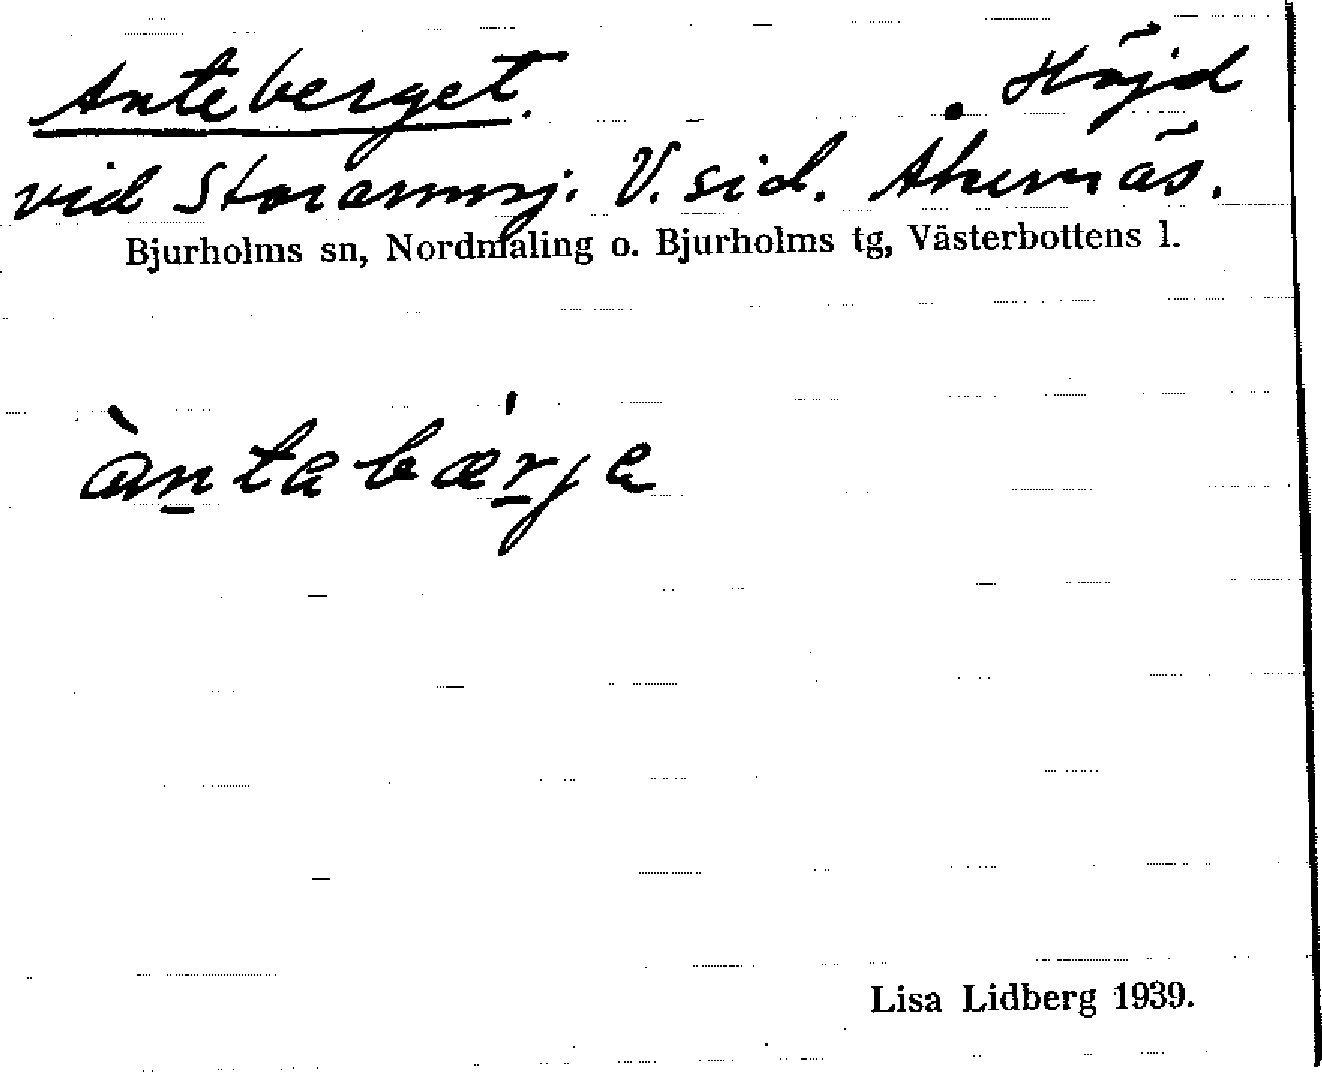 Anteberget. Höjd
vid Storarmsj. V. sid. Åhernäs.
Bjurholms sn, Nordmaling o. Bjurholms tg, Västerbottens l.
àntabæ̀rja
Lisa Lidberg 1939.